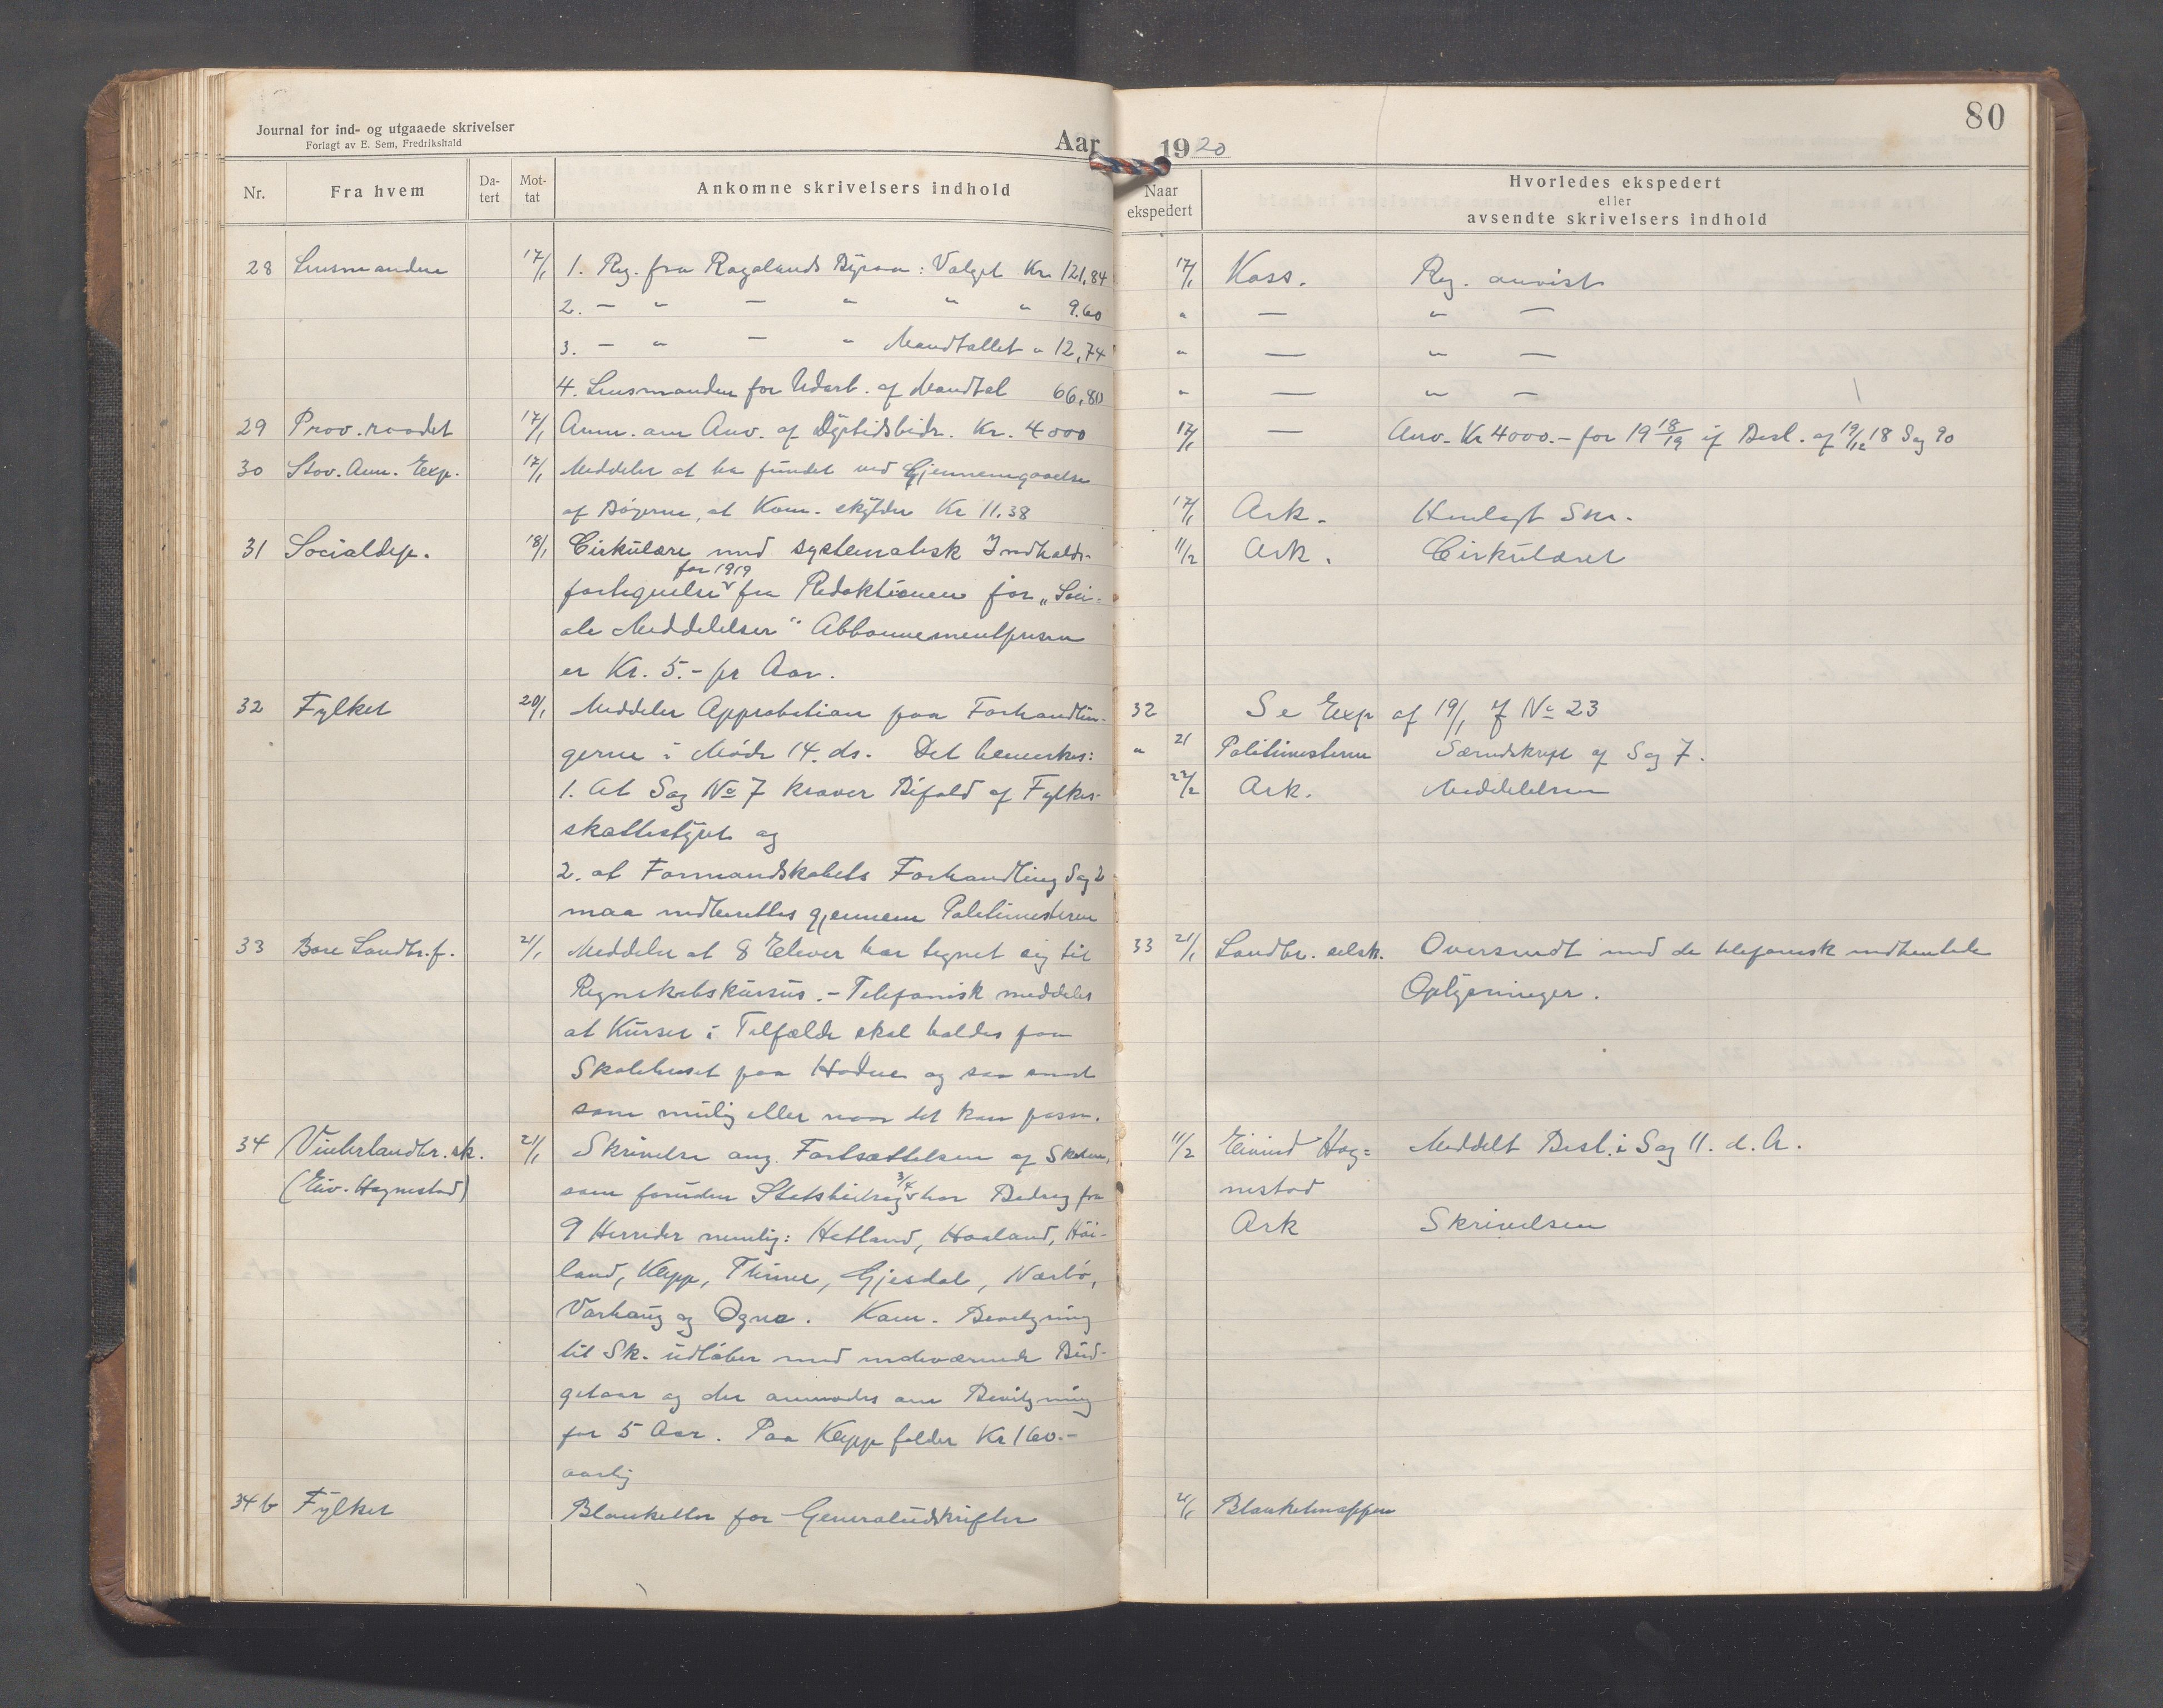 Journal for ind- og utgaaede skrivelser
Forlagt av E. Sem, Fredrikshald
Aar
Nr.
Fra hvem
Da-
tert
Mot-
tat
Ankomne skrivelsers indhold
28 Lensmanden 17/1 1. Reg. fra Rogalands Byraa: Valget Kr 121,84
2. — " — " " " 9.60
3. — " — " Mandtallet " 12,74
4. Lensmanden for Udarb. af Mandtal 66,80
29 Prov.raadet 17/1 Anm. om Anv. af Dyrtidsbidr. Kr. 4000
30 Stav. Am. Exp. 17/1 Meddeler at ha fundet ved Gjennemgaaelse
af Bøgerne, at Kom. skylder Kr 11.38
31 Socialdep. 18/1 Cirkulære med systematisk Indholds-
for 1919
fortegnelse fra Redaktionen for „Soci-
ale Meddelelser“ Abbonnementsprisen
er Kr. 5.- pr Aar.
32 Fylket 20/1 Meddeler Approbation paa Forhandlin-
gerne i Møde 14. ds. Det bemerkes:
1. At Sag No 7 kræver Bifald af Fylkes-
skattestyret og
2. at Formandskabets Forhandling Sag 2
maa indberettes gjennem Politimesteren
33 Bore Landbr.f. 21/1 Meddeler at 8 Elever har tegnet sig til
Regnskabskursus. - Telefonisk meddeles
at Kurset i Tilfælde skal holdes paa
Skolehuset paa Hodne og saa snart
som mulig eller naar det kan passe.
34 Vinterlandbr.sk. 21/1 Skrivelse ang. Fortsættelsen af Skolen,
(Eiv. Hognestad)
som foruden Statsbidrag 3/4 har Bidrag fra
9 Herreder nemlig: Hetland, Haaland, Høi-
land, Klepp, Thime, Gjesdal, Nærbø,
Varhaug og Ogna. Kom. Bevilgning
til Sk. udløber med indeværende Bud-
getaar og der anmodes om Bevilgning
for 5 Aar. Paa Klepp falder Kr 160.-
aarlig
34 b Fylket Blanketter for Generaludskrifter
1920
80
Naar
ekspedert
Hvorledes ekspedert
eller
avsendte skrivelsers indhold
17/1 Kass. Reg. anvist
" — " —
" — " —
" — " —
17/1 — Anv. Kr 4000.- for 19 18/19 if Besl. af 19/12 18 Sag 90
17/1 Ark. Henlagt Skr.
11/2 Ark. Cirkulæret
32 Se Exp af 19/1 if No 23
" 21 Politimesteren Særudskrift af Sag 7.
22/2 Ark. Meddelelsen
33 21/1 Landbr. selsk. Oversendt med de telefonisk indhentede
Oplysninger.
11/2 Eivind Hog= Meddelt Besl. i Sag 11. d. A.
nestad
Ark Skrivelsen
21/1 Blanketmappen